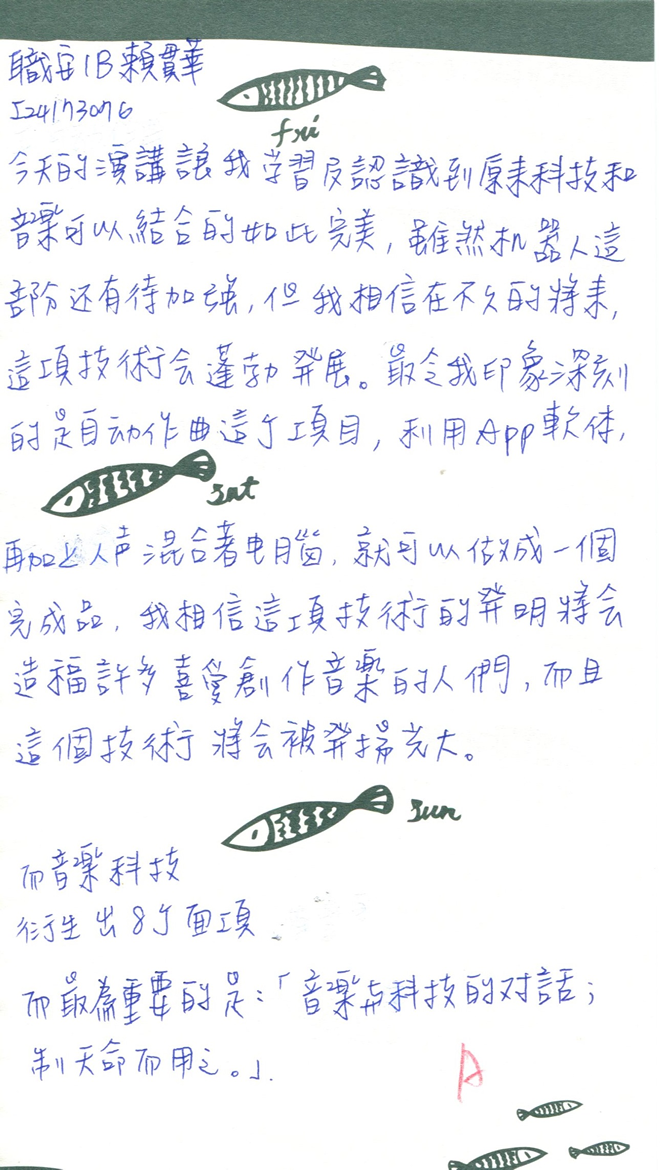 職安1B賴貫華
I24173076
fri
今天的演講讓我学習及認識到原来科技和
音樂可以結合的如此完美,雖然机器人這
部份还有待加強,但我相信在不久的將来,
這項技術会蓬勃発展。最令我印象深刻
的是自动作曲這个項目,利用App軟体,
sat
再加上人声混合著电腦,就可以做成一個
完成品,我相信這項技術的発明將会
造福許多喜愛創作音樂的人們,而且
這個技術將会被発揚光大。
sun
而音樂科技
衍生出8个面項
而最為重要的是:「音樂与科技的对話;
制天命而用之。」.
A